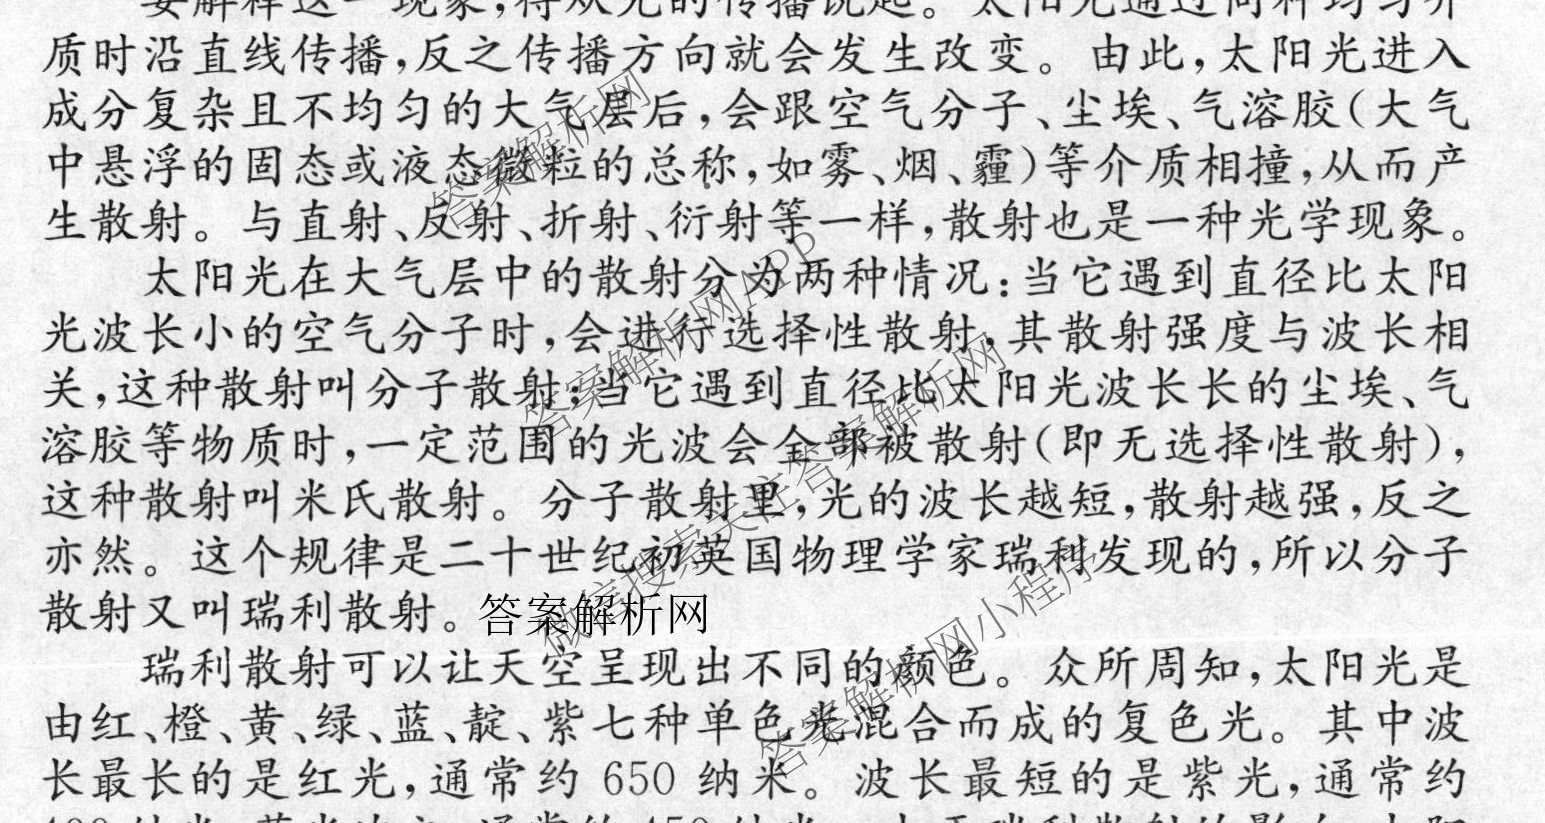 要解释这一现象,得从光的传播说起。太阳光通过同种均匀介
质时沿直线传播,反之传播方向就会发生改变。由此,太阳光进入
成分复杂且不均匀的大气层后,会跟空气分子、尘埃、气溶胶(大气
中悬浮的固态或液态微粒的总称,如雾、烟、霾)等介质相撞,从而产
生散射。与直射、反射、折射、衍射等一样,散射也是一种光学现象。
太阳光在大气层中的散射分为两种情况:当它遇到直径比太阳
光波长小的空气分子时,会进行选择性散射,其散射强度与波长相
关,这种散射叫分子散射;当它遇到直径比太阳光波长长的尘埃、气
溶胶等物质时,一定范围的光波会全部被散射(即无选择性散射),
这种散射叫米氏散射。分子散射里,光的波长越短,散射越强,反之
亦然。这个规律是二十世纪初英国物理学家瑞利发现的,所以分子
散射又叫瑞利散射。答案解析网
瑞利散射可以让天空呈现出不同的颜色。众所周知,太阳光是
由红、橙、黄、绿、蓝、靛、紫七种单色光混合而成的复色光。其中波
长最长的是红光,通常约 650 纳米。波长最短的是紫光,通常约
答案解析网
答案解析网APP
微信搜索关注答案解析网
答案解析网小程序